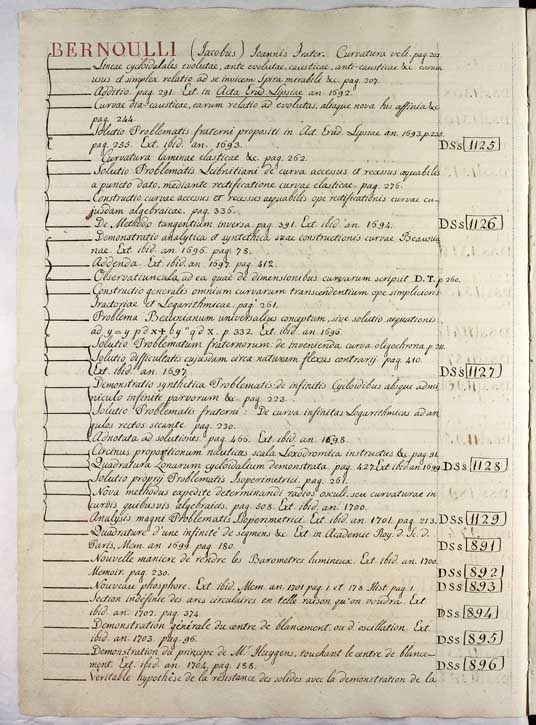 BERNOULLI (Jacobus) Ioannis Frater. Curvatura veli. pag. 202.
Lineae cycloidales evolutae, ante evolutae, causticae, anti-causticae & earum
usus et simplex relatio ad se invicem Spira mirabili &c. pag. 207.
Additio. pag. 291. Ext. in Acta Erud. Lipsiae an. 1692.
Curvae dia-causticae, earum relatio ad evolutas, aliaque nova his affinia &c
pag. 244.
Solutio Problematis fraterni propositi in Act. Erud. Lipsiae an. 1693. p. 235.
pag. 255. Ext. ibid. an. 1693. DSs 1125
Curvatura laminae elasticae &c. pag. 262.
Solutio Problematis Leibnitiani de curva accessus et recessus aequabilis
a puncto dato, mediante rectificatione curvae elasticae. pag. 276.
Constructio curvae accessus et recessus aequabilis ope rectificationis curvae cu-
jusdam algebraicae. pag. 336.
De Methodo tangentium inversa. pag. 391. Ext. ibid. an. 1694. DSs 1126
Demonstratio analytica et syntethica suae constructionis curvae Beaunia
nae. Ext. ibid. an. 1696. pag. 78.
Addenda. Ext. ibid. an. 1695. pag. 412.
Observatiuncula, ad ea quae de dimensionibus curvarum scripsit D. T. p. 260.
Constructio generalis omnium curvarum transcendentium ope simplicioris
Tractoriae et Logarithmicae. pag. 261.
Problema Beaunianum universalius conceptum, sive solutio aequationis:
ad y = y p d x + b y n q d x. p. 332. Ext. ibid. an. 1696.
Solutio Problematum fraternorum: de invenienda curva oligochrona. p. 211.
Solutio difficultatis cujusdam circa naturam flexus contrarij pag. 410.
Ext. ibid. an. 1697. DSs 1127
Demonstratio synthetica Problematis: de infinitis Cycloidibus absque admi-
niculo infinite parvorum & pag. 223.
Solutio Problematis fraterni: De curva infinitas Logarithmicas ad an
gulos rectos secante. pag. 230.
Adnotata ad solutiones. pag. 466. Ext. ibid. an. 1698.
Circinus proportionum nauticus scala Loxodromica instructus &c pag. 91.
Quadratura Zonarum cycloidalium demonstrata. pag. 427. Ext. ibid. an. 1699. DSs 1128
Solutio proprij Problematis Isoperimetrici. pag. 261.
Nova methodus expedite determinandi radios osculi. seu curvaturae in
curvis quibusvis algebraicis, pag. 508. Ext. ibid. an. 1700.
Analysis magni Problematis Isoperimetrici. Ext. ibid. an. 1701. pag. 213. DSs 1129
Quadrature d'une infinité de segmens &c. Ext. in Academie Roy. d. Sc. d.
Paris, Mem. an 1699. pag. 180. DSs 891
Nouvelle maniére de rendre les Barometres lumineux. Ext. ibid. an. 1700.
Memoir. pag. 230. DSs 892
Nouveau phosphore. Ext. ibid. Mem. an. 1701 pag. 1. et 178 Hist. pag. 1. DSs 893
Section indefinie des arcs circulaires en telle raison qu'on voudra. Ext
ibid. an. 1702. pag. 374. DSs 894
Demonstration générale du centre de blancement, ou d'oscillation. Ext.
ibid. an. 1703. pag. 96. DSs 895
Demonstration du principe de Mr. Huygens, touchant le centre de blance-
ment. Ext. ibid an. 1704, pag. 188. DSs 896
Veritable hypothése de la résistance des solides avec la demonstration de la